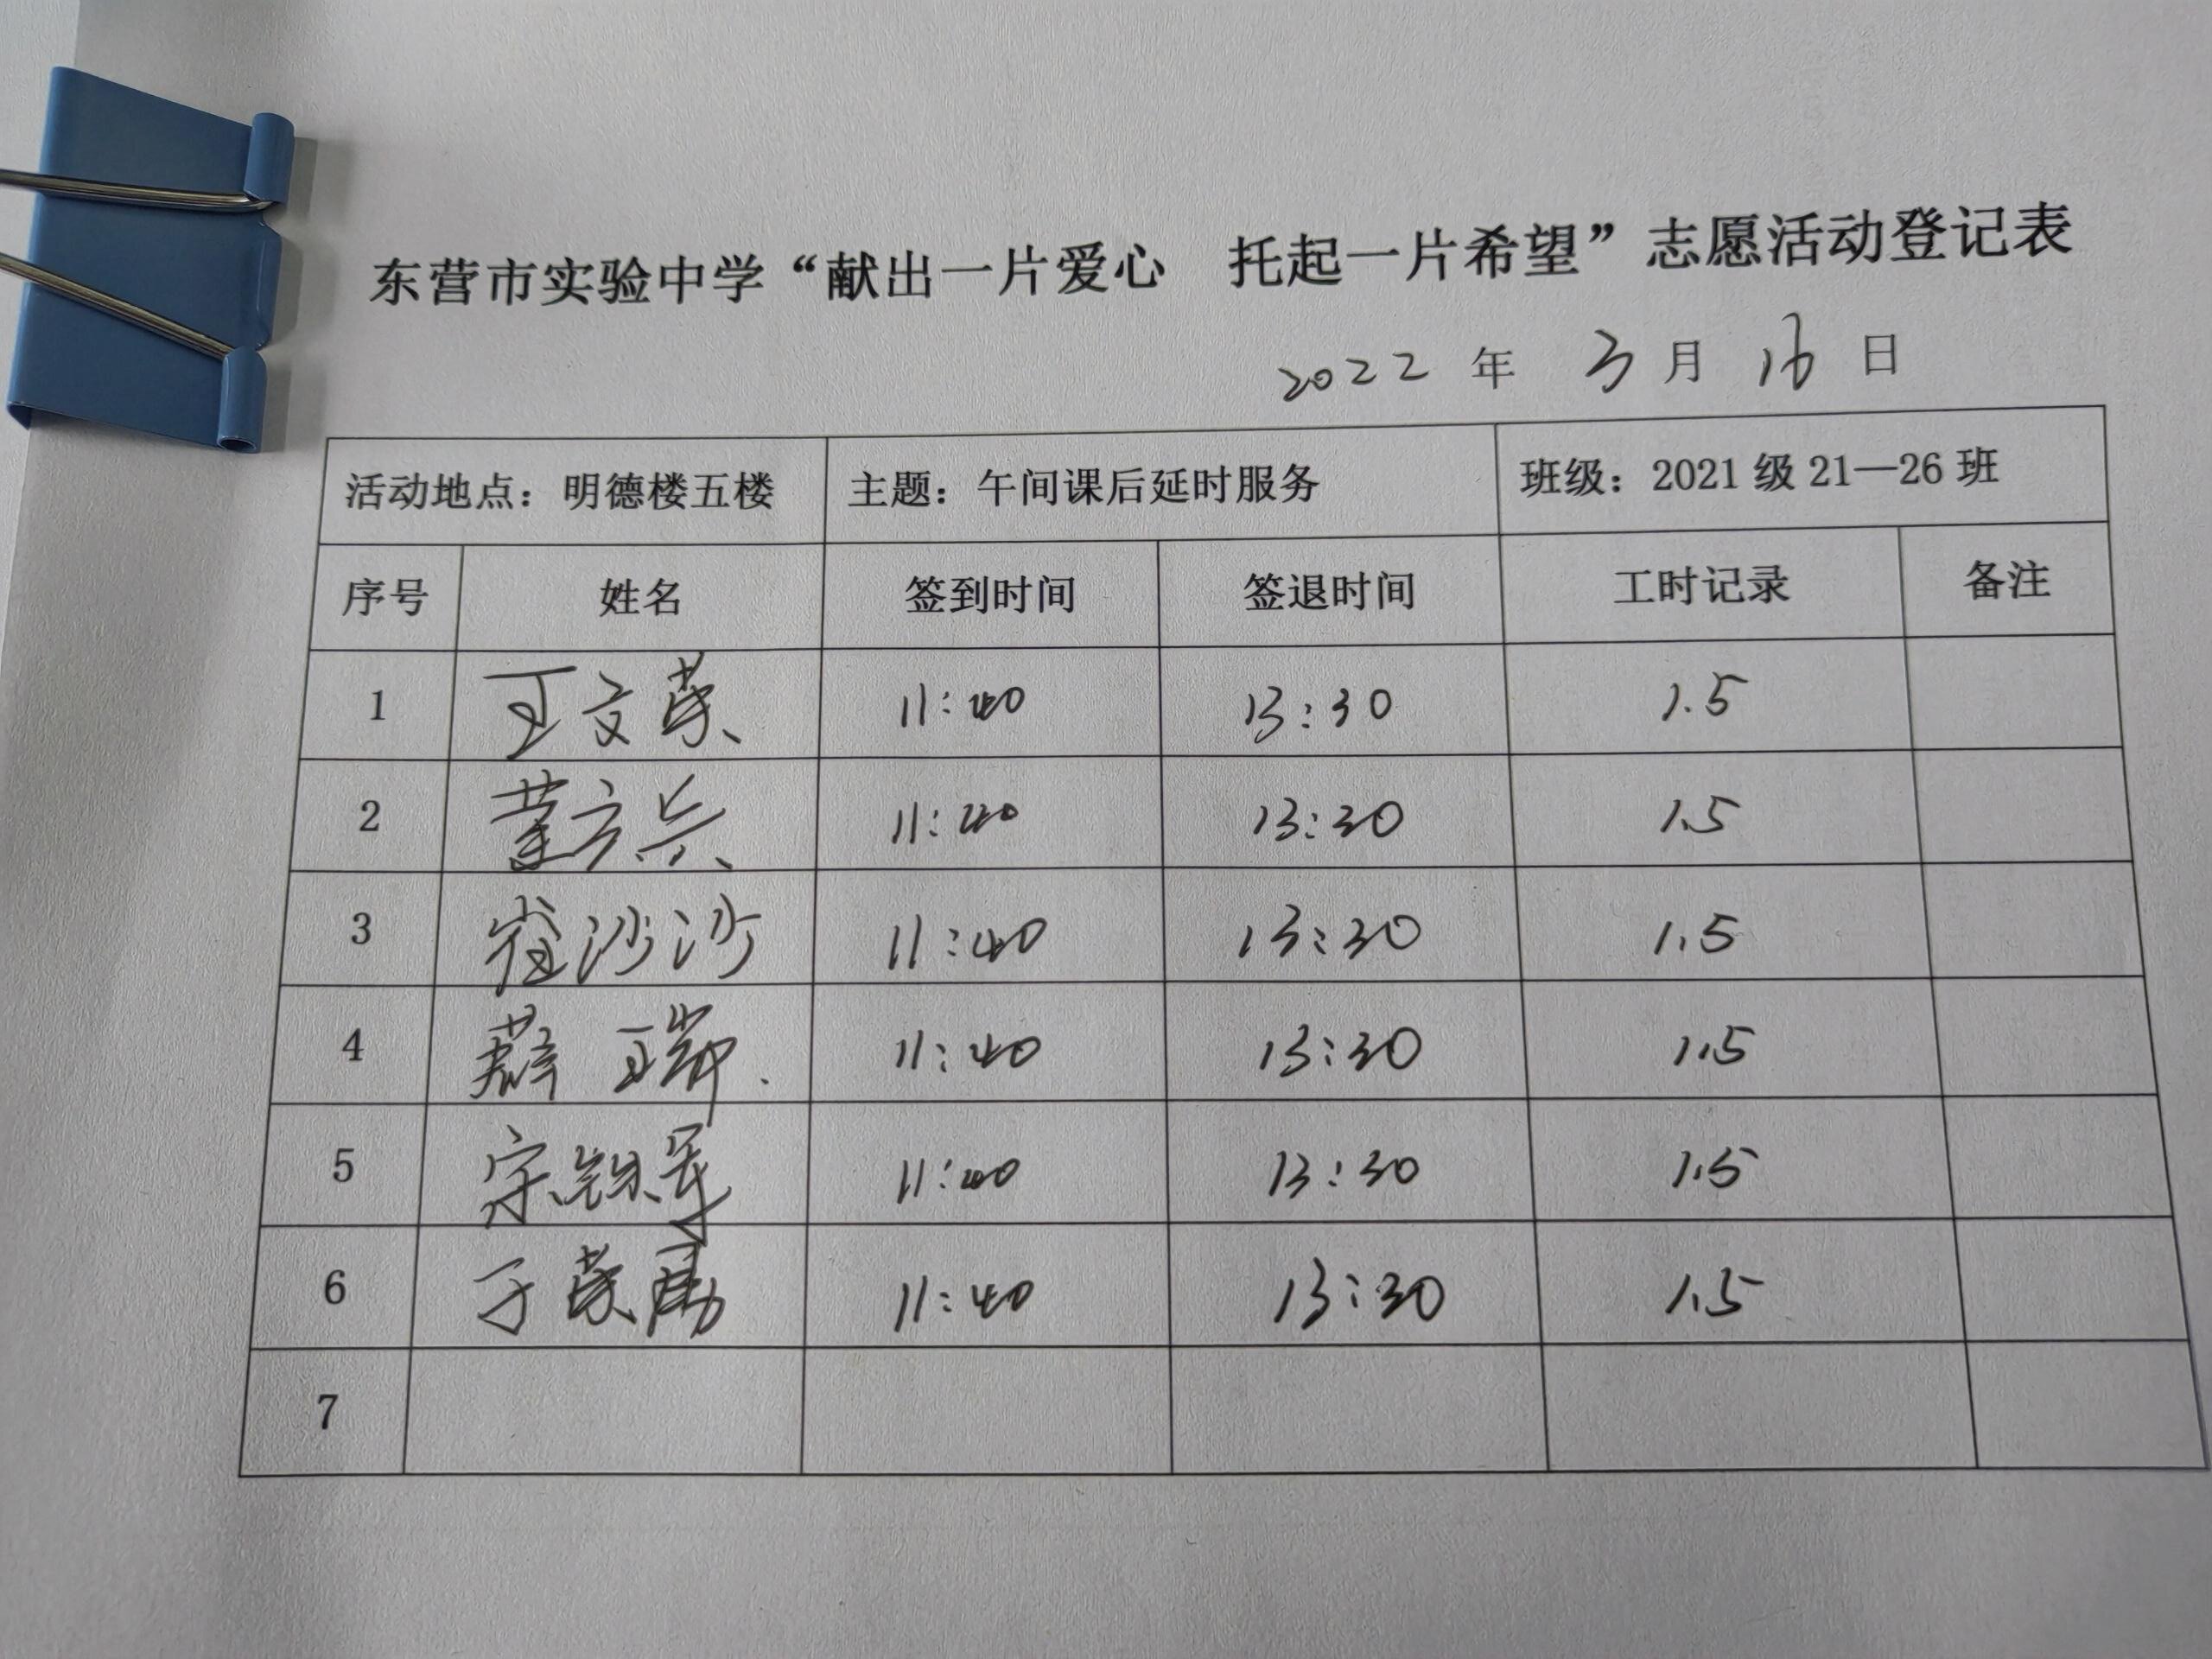 东营市实验中学“献出一片爱心 托起一片希望”志愿活动登记表
2022 年 3 月 16 日
活动地点：明德楼五楼 主题：午间课后延时服务 班级：2021 级 21—26 班
序号 姓名 签到时间 签退时间 工时记录 备注
1 王文英 11:40 13:30 1.5
2 董立兵 11:40 13:30 1.5
3 崔沙沙 11:40 13:30 1.5
4 薛瑞 11:40 13:30 1.5
5 宋 11:40 13:30 1.5
6 于 11:40 13:30 1.5
7